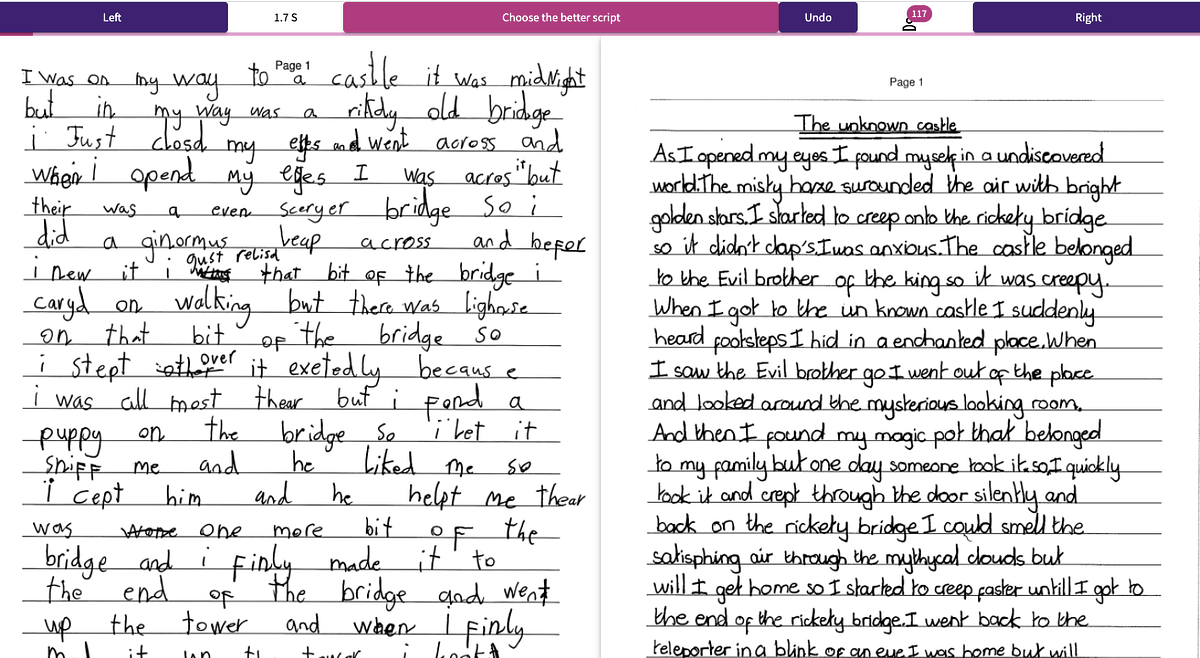 Left
1.7 S
Choose the better script
Undo
117
Right
Page 1
I was on my way to a castle it was midNight
but in my way was a rikdy old bridge
i Just closd my eyes and went across and
when i opend my eyes I was acros it but
their was a even sceryer bridge so i
did a ginormus leap across and befor
i new it i gust relisd that bit of the bridge i
caryd on walking but there was lighouse
on that bit of the bridge so
i stept over it exetedly becaus e
i was all most thear but i fond a
puppy on the bridge so i let it
sniff me and he liked me so
i cept him and he helpt me thear
was one more bit of the
bridge and i finly made it to
the end of the bridge and went
up the tower and when I finly
Page 1
The unknown castle
As I opened my eyes I found myself in a undiscovered
world.The misky haze surounded the air with bright
golden stars.I started to creep onto the rickety bridge
so it didn't clap's.I was anxious.The castle belonged
to the Evil brother of the king so it was creepy.
When I got to the un known castle I suddenly
heard footsteps I hid in a enchanted place.When
I saw the Evil brother go I went out of the place
and looked around the mysterious looking room.
And then I found my magic pot that belonged
to my family but one day someone took it.so I quickly
took it and crept through the door silently and
back on the rickety bridge I could smell the
satisphing air through the mythycal clouds but
will I get home so I started to creep faster untill I got to
the end of the rickety bridge.I went back to the
teleporter in a blink of an eye I was home but will